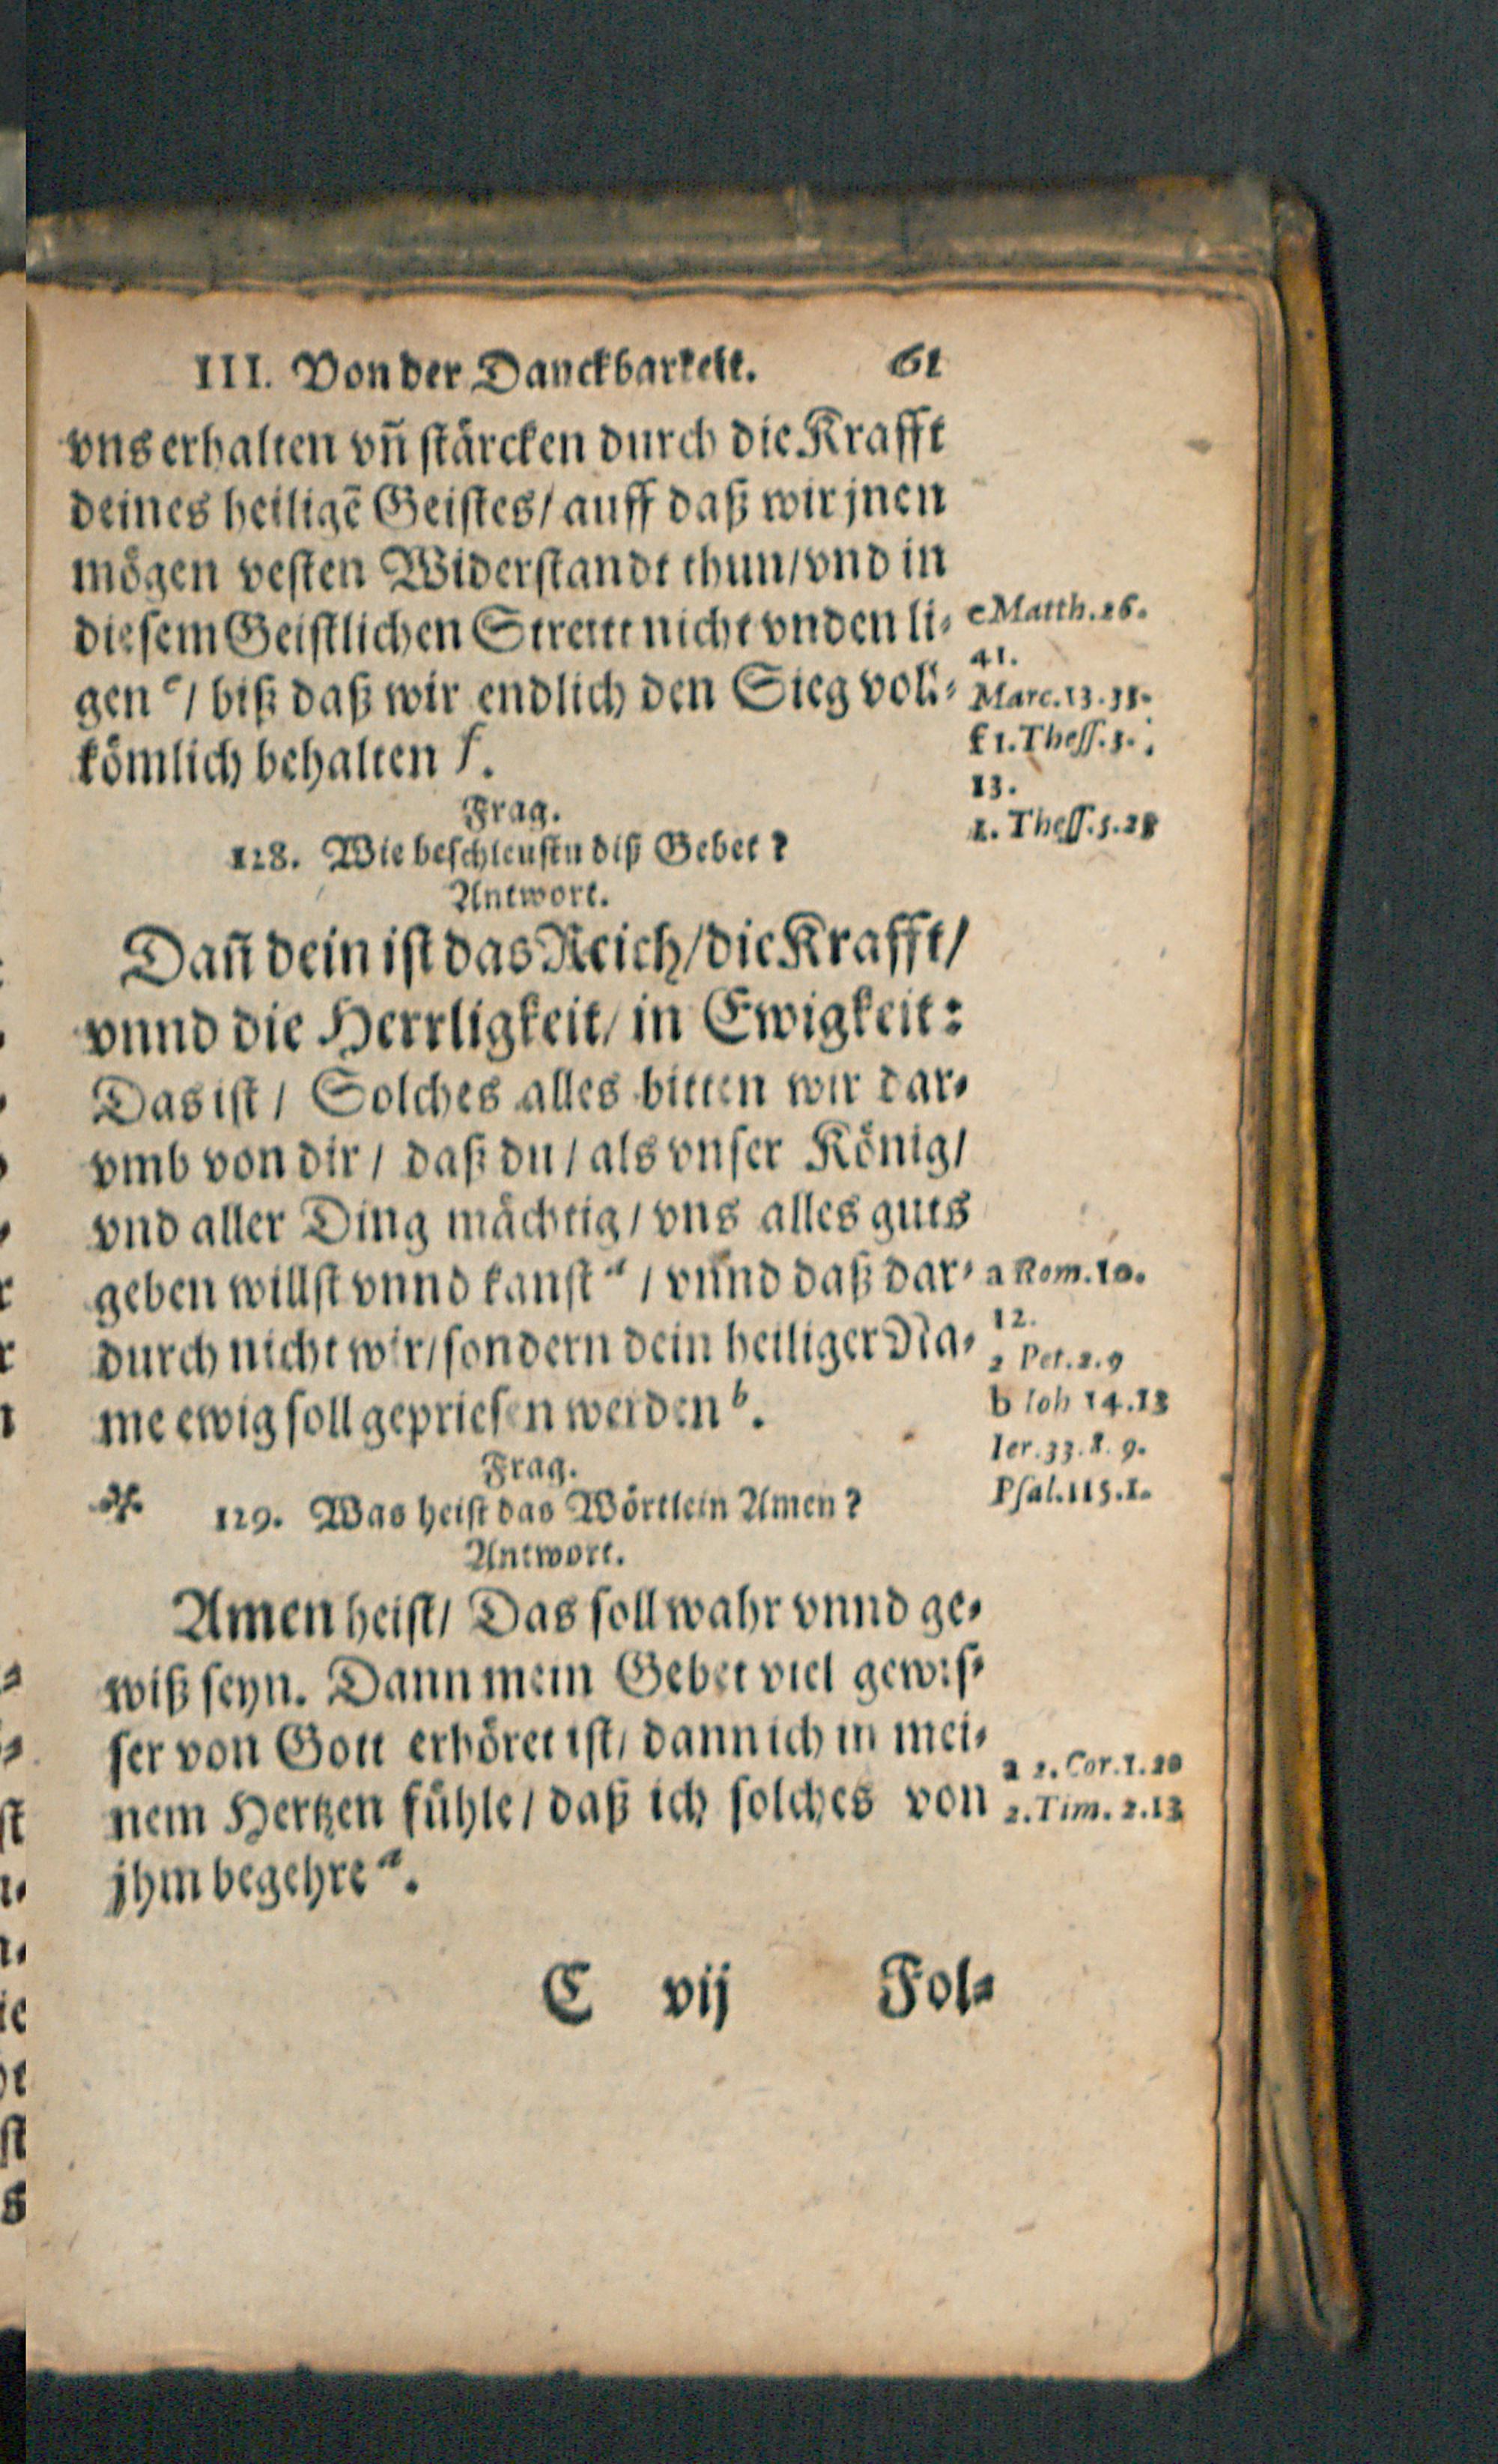 III. Von der Danckbarkeit. 61
vns erhalten vn̄ stärcken durch die Krafft
deines heiligē Geistes/ auff daß wir jnen
mögen vesten Widerstandt thun/ vnd in
diesem Geistlichen Streitt nicht vnden li-
gen e/ biß daß wir endlich den Sieg voll-
kömlich behalten f.
e Matth. 26.
41.
Marc. 13. 33.
f 1. Thess. 3.
13.
1. Thess. 5. 23
Frag.
128. Wie beschleustu diß Gebet?
Antwort.
Dan̄ dein ist das Reich/ die Krafft/
vnnd die Herrligkeit/ in Ewigkeit:
Das ist/ Solches alles bitten wir dar-
vmb von dir/ daß du/ als vnser König/
vnd aller Ding mächtig/ vns alles guts
geben willst vnnd kanst a/ vnnd daß dar-
durch nicht wir/ sondern dein heiliger Na-
me ewig soll gepriesen werden b.
a Rom. 10.
12.
2 Pet. 2. 9
b Ioh 14. 13
Ier. 33. 8. 9.
Psal. 115. 1.
Frag.
129. Was heist das Wörtlein Amen?
Antwort.
Amen heist/ Das soll wahr vnnd ge-
wiß seyn. Dann mein Gebet viel gewis-
ser von Gott erhöret ist/ dann ich in mei-
nem Hertzen fühle/ daß ich solches von
jhm begehre a.
a 2. Cor. 1. 20
2. Tim. 2. 13
C vij Fol-